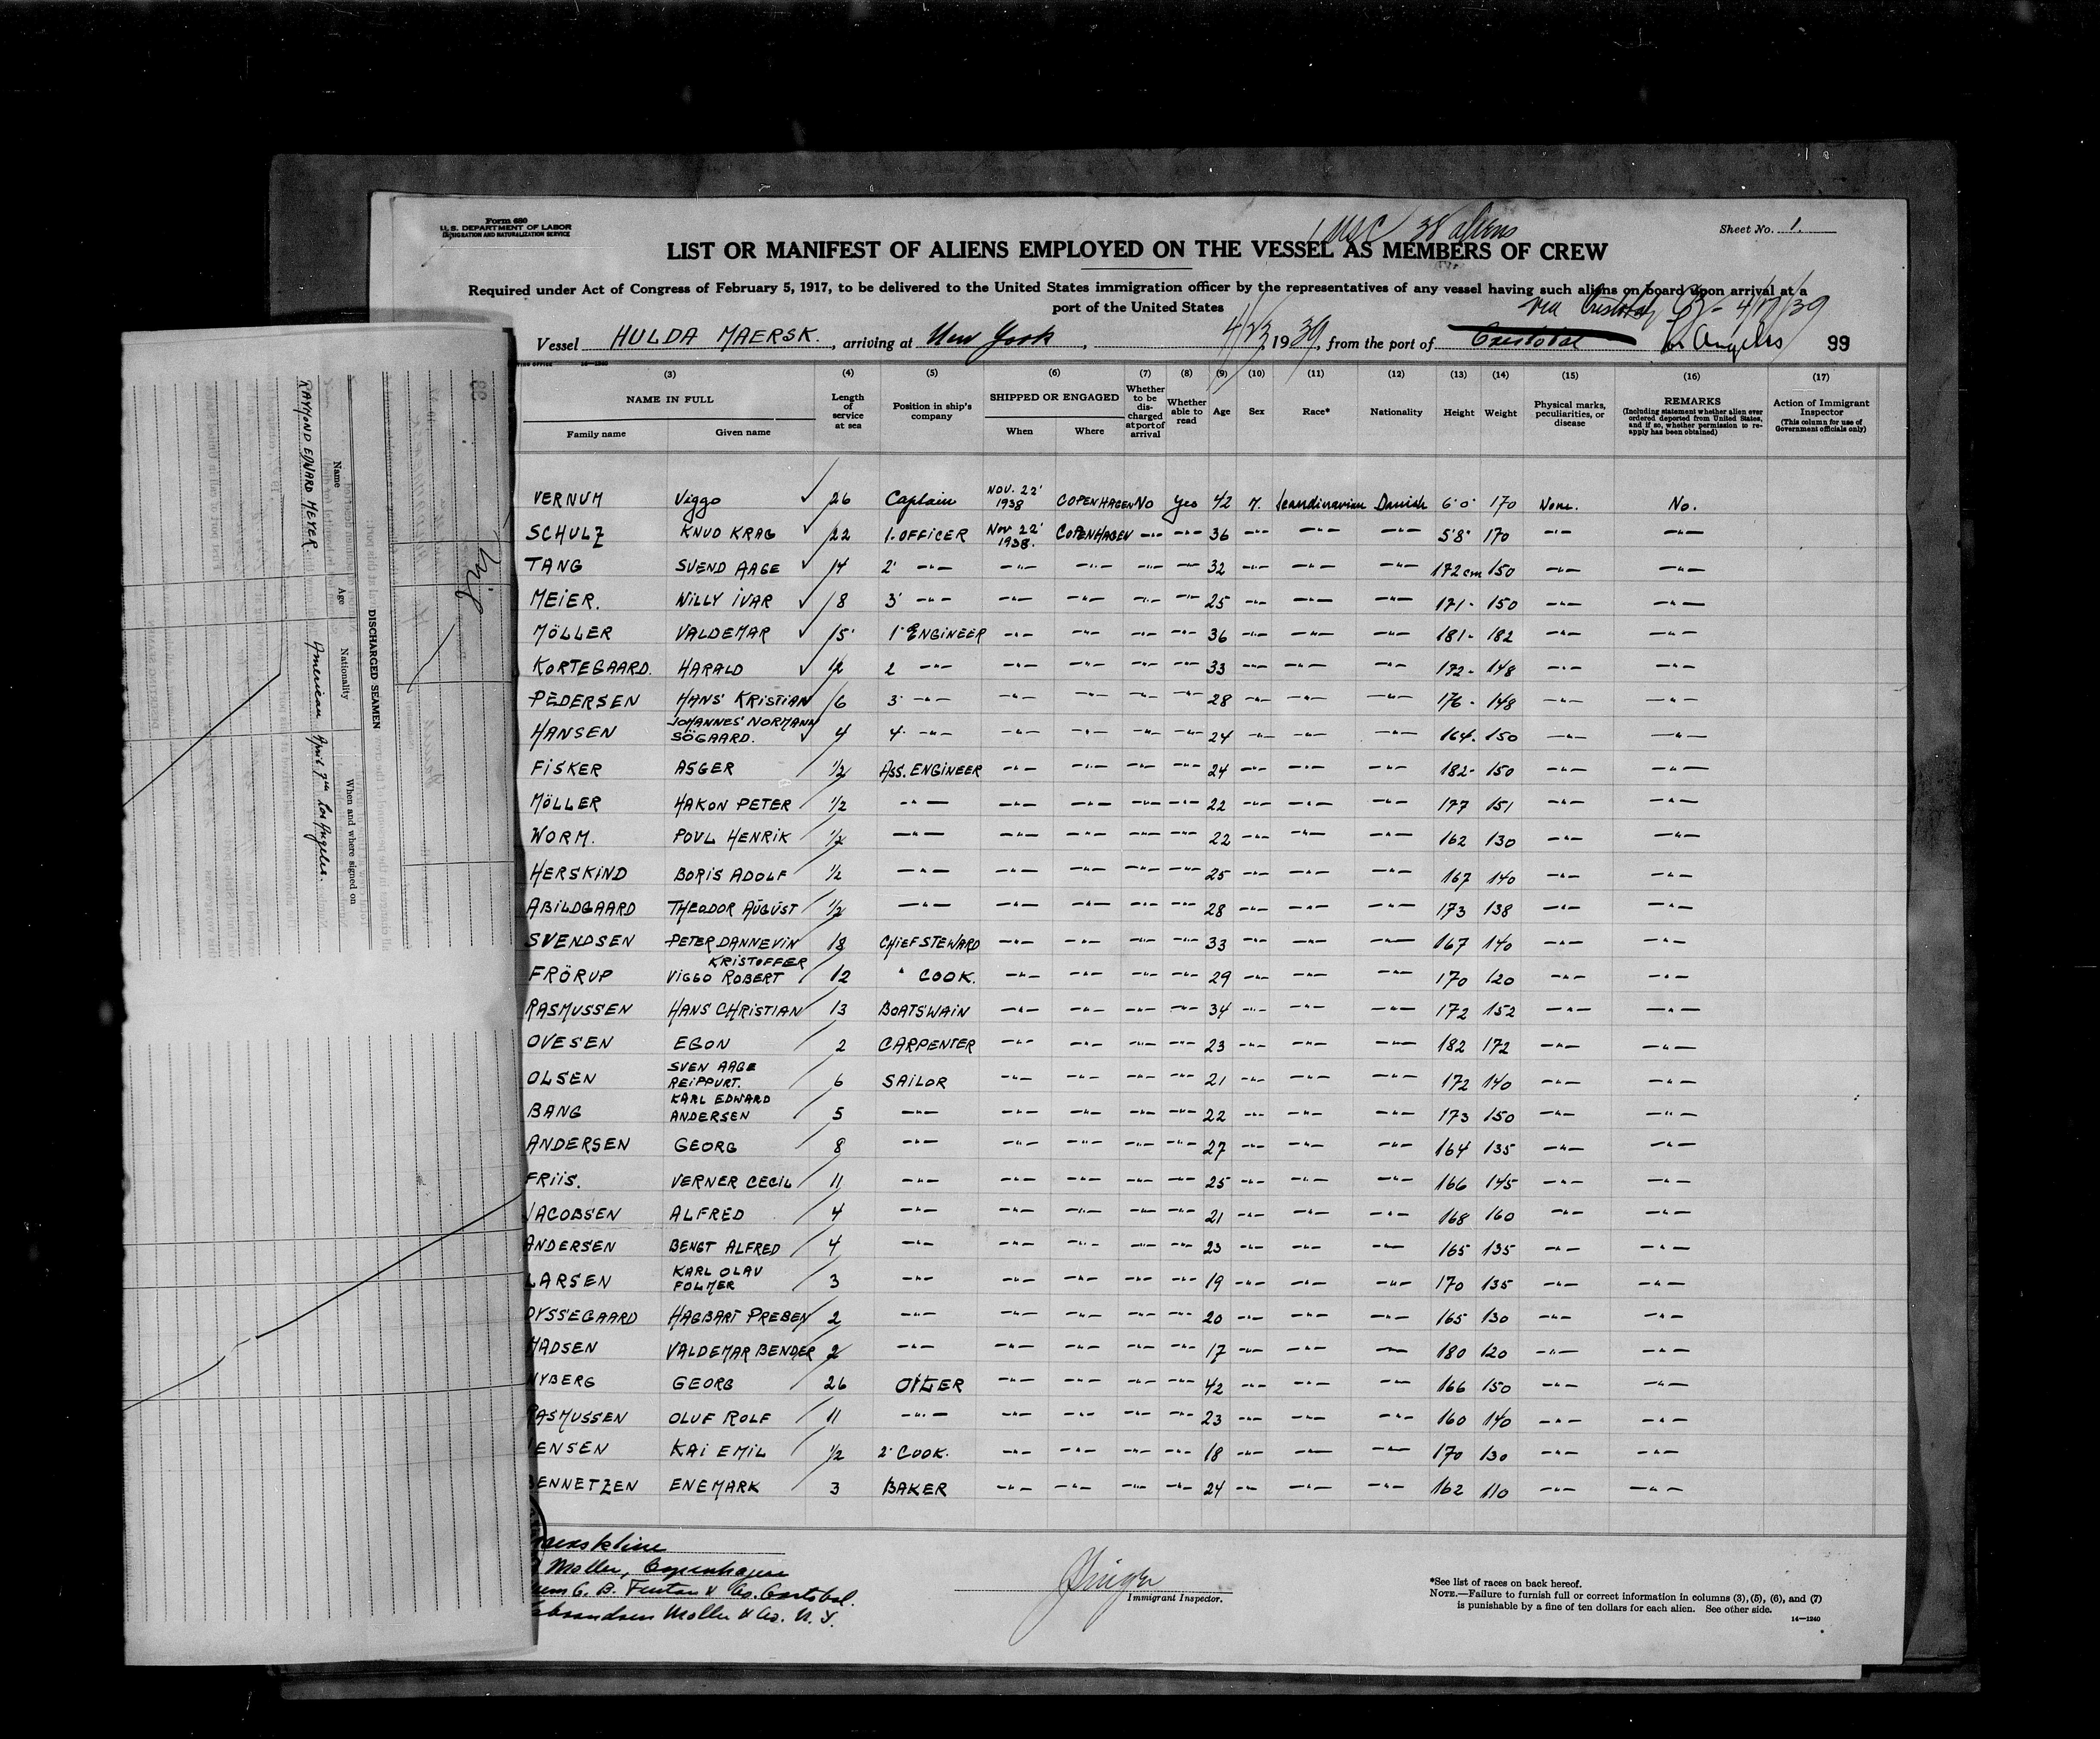 Form 680
U. S. DEPARTMENT OF LABOR
IMMIGRATION AND NATURALIZATION SERVICE
1 USC 38 aliens
Sheet No. 1.
LIST OR MANIFEST OF ALIENS EMPLOYED ON THE VESSEL AS MEMBERS OF CREW
Required under Act of Congress of February 5, 1917, to be delivered to the United States immigration officer by the representatives of any vessel having such aliens on board upon arrival at a
port of the United States
via Cristobal CZ - 4/17/39
Vessel HULDA MAERSK., arriving at New York, 4/23, 1939, from the port of Cristobal Los Angeles 99
(3) (4) (5) (6) (7) (8) (9) (10) (11) (12) (13) (14) (15) (16) (17)
NAME IN FULL Family name Given name Length of service at sea Position in ship's company SHIPPED OR ENGAGED When Where Whether to be discharged at port of arrival Whether able to read Age Sex Race* Nationality Height Weight Physical marks, peculiarities, or disease REMARKS (Including statement whether alien ever ordered deported from United States, and if so, whether permission to re-apply has been obtained) Action of Immigrant Inspector (This column for use of Government officials only)
VERNUM Viggo 26 Captain NOV. 22' 1938 COPENHAGEN No Yes 42 M. Scandinavian Danish 6'0" 170 None. No.
SCHULZ KNUD KRAG 22 1. OFFICER Nov 22' 1938. COPENHAGEN -"- -"- 36 -"- -"- -"- 5'8" 170 -"- -"-
TANG SVEND AAGE 14 2' -"- -"- -"- -"- -"- 32 -"- -"- -"- 172 cm 150 -"- -"-
MEIER. WILLY IVAR 8 3' -"- -"- -"- -"- -"- 25 -"- -"- -"- 171 - 150 -"- -"-
MÖLLER VALDEMAR 15 1' ENGINEER -"- -"- -"- -"- 36 -"- -"- -"- 181 - 182 -"- -"-
KORTEGAARD. HARALD 12 2 -"- -"- -"- -"- -"- 33 -"- -"- -"- 172 - 148 -"- -"-
PEDERSEN HANS KRISTIAN 6 3' -"- -"- -"- -"- -"- 28 -"- -"- -"- 176 - 148 -"- -"-
HANSEN JOHANNES NORMANN SÖGAARD. 4 4. -"- -"- -"- -"- -"- 24 -"- -"- -"- 164. 150 -"- -"-
FISKER ASGER 1/2 ASS. ENGINEER -"- -"- -"- -"- 24 -"- -"- -"- 182 - 150 -"- -"-
MÖLLER HAKON PETER 1/2 -"- -"- -"- -"- -"- 22 -"- -"- -"- 177 151 -"- -"-
WORM. POUL HENRIK 1/2 -"- -"- -"- -"- -"- 22 -"- -"- -"- 162 130 -"- -"-
HERSKIND BORIS ADOLF 1/2 -"- -"- -"- -"- -"- 25 -"- -"- -"- 167 140 -"- -"-
ABILDGAARD THEODOR AUGUST 1/2 -"- -"- -"- -"- -"- 28 -"- -"- -"- 173 138 -"- -"-
SVENDSEN PETER DANNEVIN 18 CHIEF STEWARD -"- -"- -"- -"- 33 -"- -"- -"- 167 140 -"- -"-
FRÖRUP KRISTOFFER VIGGO ROBERT 12 " COOK. -"- -"- -"- -"- 29 -"- -"- -"- 170 120 -"- -"-
RASMUSSEN HANS CHRISTIAN 13 BOATSWAIN -"- -"- -"- -"- 34 -"- -"- -"- 172 152 -"- -"-
OVESEN EGON 2 CARPENTER -"- -"- -"- -"- 23 -"- -"- -"- 182 172 -"- -"-
OLSEN SVEN AAGE REIPPURT. 6 SAILOR -"- -"- -"- -"- 21 -"- -"- -"- 172 140 -"- -"-
BANG KARL EDWARD ANDERSEN 5 -"- -"- -"- -"- -"- 22 -"- -"- -"- 173 150 -"- -"-
ANDERSEN GEORG 8 -"- -"- -"- -"- -"- 27 -"- -"- -"- 164 135 -"- -"-
FRIIS. VERNER CECIL 11 -"- -"- -"- -"- -"- 25 -"- -"- -"- 166 145 -"- -"-
JACOBSEN ALFRED 4 -"- -"- -"- -"- -"- 21 -"- -"- -"- 168 160 -"- -"-
ANDERSEN BENGT ALFRED 4 -"- -"- -"- -"- -"- 23 -"- -"- -"- 165 135 -"- -"-
LARSEN KARL OLAV FOLMER 3 -"- -"- -"- -"- -"- 19 -"- -"- -"- 170 135 -"- -"-
DYSSEGAARD HAGBART PREBEN 2 -"- -"- -"- -"- -"- 20 -"- -"- -"- 165 130 -"- -"-
MADSEN VALDEMAR BENDER 2 -"- -"- -"- -"- -"- 17 -"- -"- -"- 180 120 -"- -"-
NYBERG GEORG 26 OILER -"- -"- -"- -"- 42 -"- -"- -"- 166 150 -"- -"-
RASMUSSEN OLUF ROLF 11 -"- -"- -"- -"- -"- 23 -"- -"- -"- 160 140 -"- -"-
JENSEN KAI EMIL 1/2 2' COOK. -"- -"- -"- -"- 18 -"- -"- -"- 170 130 -"- -"-
BENNETZEN ENEMARK 3 BAKER -"- -"- -"- -"- 24 -"- -"- -"- 162 110 -"- -"-
Maersk line
Moller, Copenhagen
C. B. Fenton & Co. Cristobal.
Moller & Co. N. Y.
Immigrant Inspector.
*See list of races on back hereof.
NOTE.—Failure to furnish full or correct information in columns (3), (5), (6), and (7)
is punishable by a fine of ten dollars for each alien. See other side.
14—1240
DISCHARGED SEAMEN
Name Age Nationality When and where signed on
RAYMOND EDWARD MEYER. American April 7th Los Angeles.